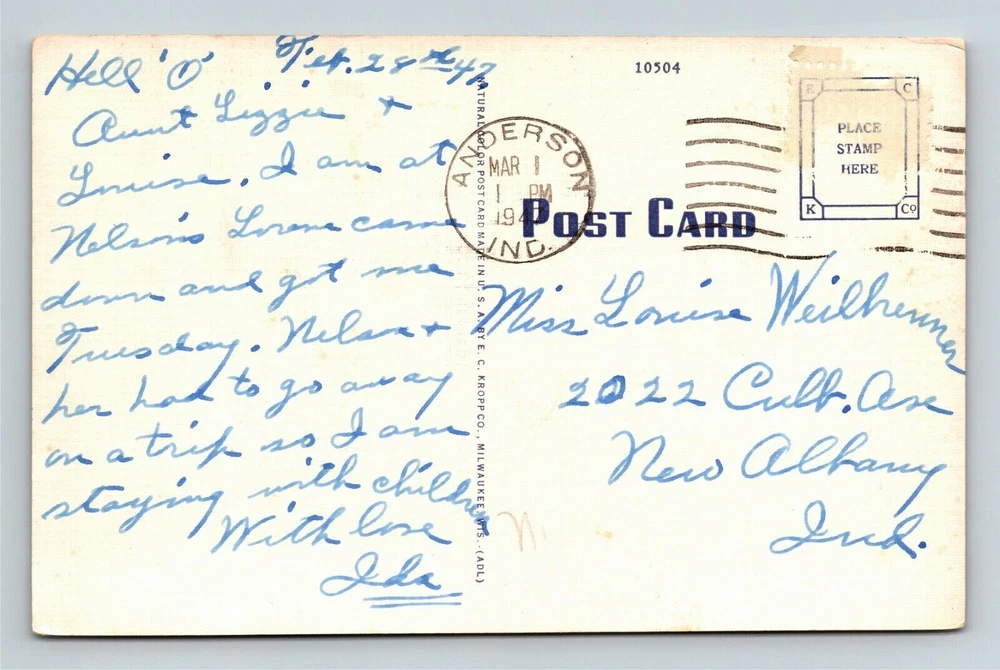 Feb. 28th 47
Hell 'O'
Aunt Lizzie +
Louise. I am at
Nelson's Lorene came
down and got me
Tuesday. Nelson +
her had to go away
on a trip so I am
staying with children
With love
Ida
NATURAL COLOR POST CARD MADE IN U. S. A. BY E. C. KROPP CO., MILWAUKEE, WIS. - (ADL)
10504
ANDERSON
MAR 1
1 PM
1947
IND.
POST CARD
E C
PLACE
STAMP
HERE
K Co
Miss Louise Weilbrenner
2022 Culb. Ave
New Albany
Ind.